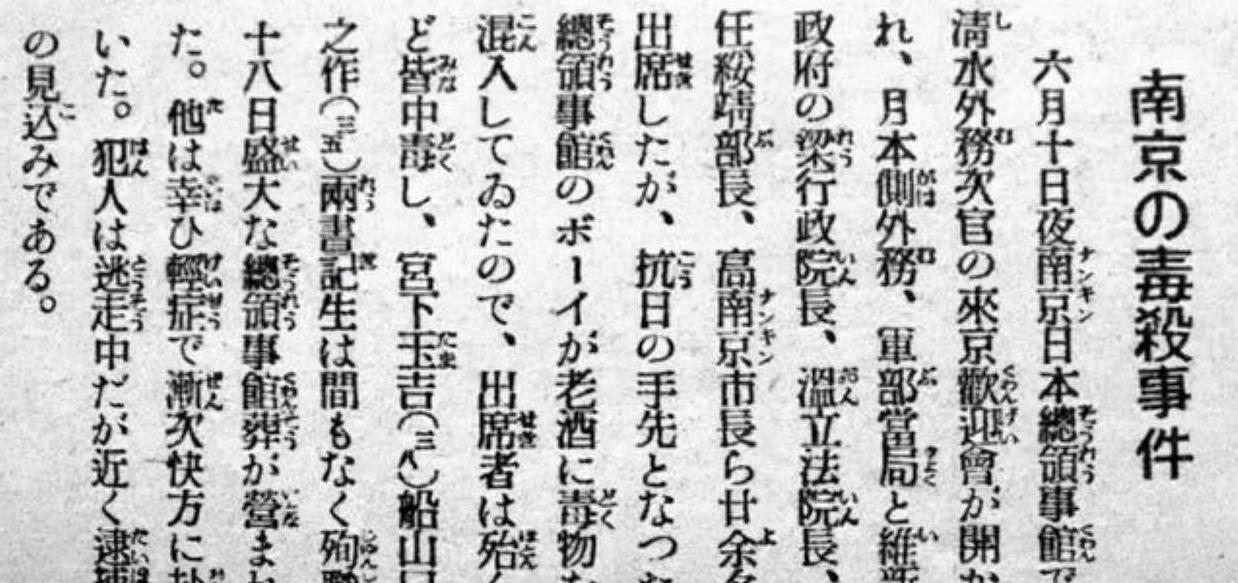 南京の毒殺事件
六月十日夜南京日本總領事館で
淸水外務次官の來京歡迎會が開か
れ、月本側外務、軍部當局と維新
政府の梁行政院長、溫立法院長、
任綏靖部長、高南京市長ら廿余名
出席したが、抗日の手先となつた
總領事館のボーイが老酒に毒物を
混入してゐたので、出席者は殆ん
ど皆中毒し、宮下玉吉(三八)船山
之作(三五)兩書記生は間もなく殉職
十八日盛大な總領事館葬が營まれ
た。他は幸ひ輕症で漸次快方に
いた。犯人は逃走中だが近く逮捕
の見込みである。